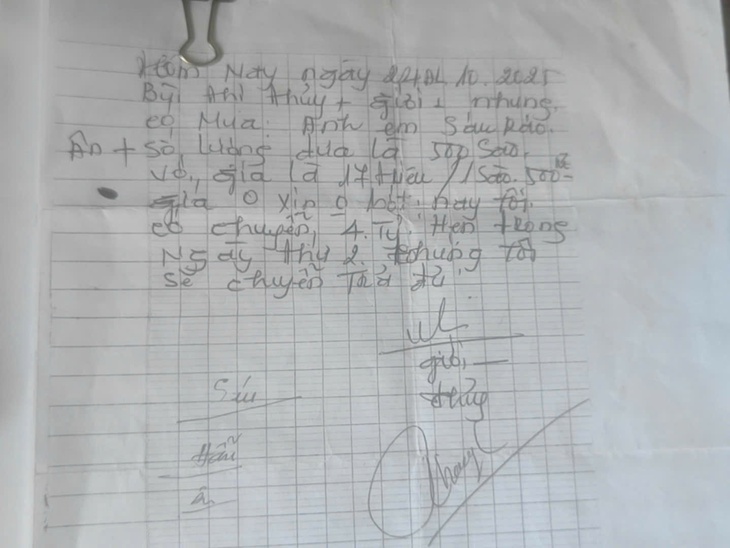 Hôm Nay ngày 24/ÐL 10. 2025
Bùi thi thủy + giỏi + nhung,
có Mua. Anh em Sáu Ráo.
Ân + số lượng dưa là 500 Sào.
Với, giá là 17 triệu /1 Sào. 500
giá 0 xin 0 bớt. nay tôi.
có chuyển, 4. Tỷ. Hẹn trong
Ngày thứ 2. chúng tôi
sẽ chuyển Trả đủ
giỏi
Sáu
thủy
Hẩu
ân
nhung